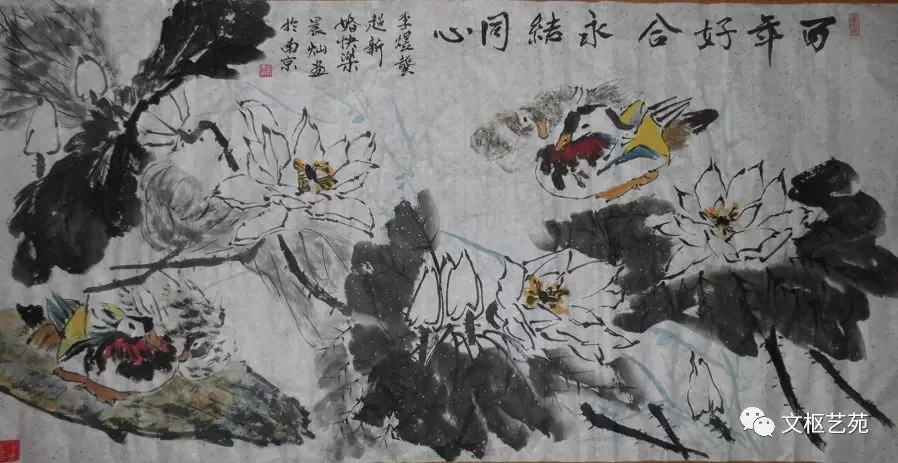 百年好合永結同心
李煜龔
超新
婚快樂
晨灿画
於南京
文枢艺苑